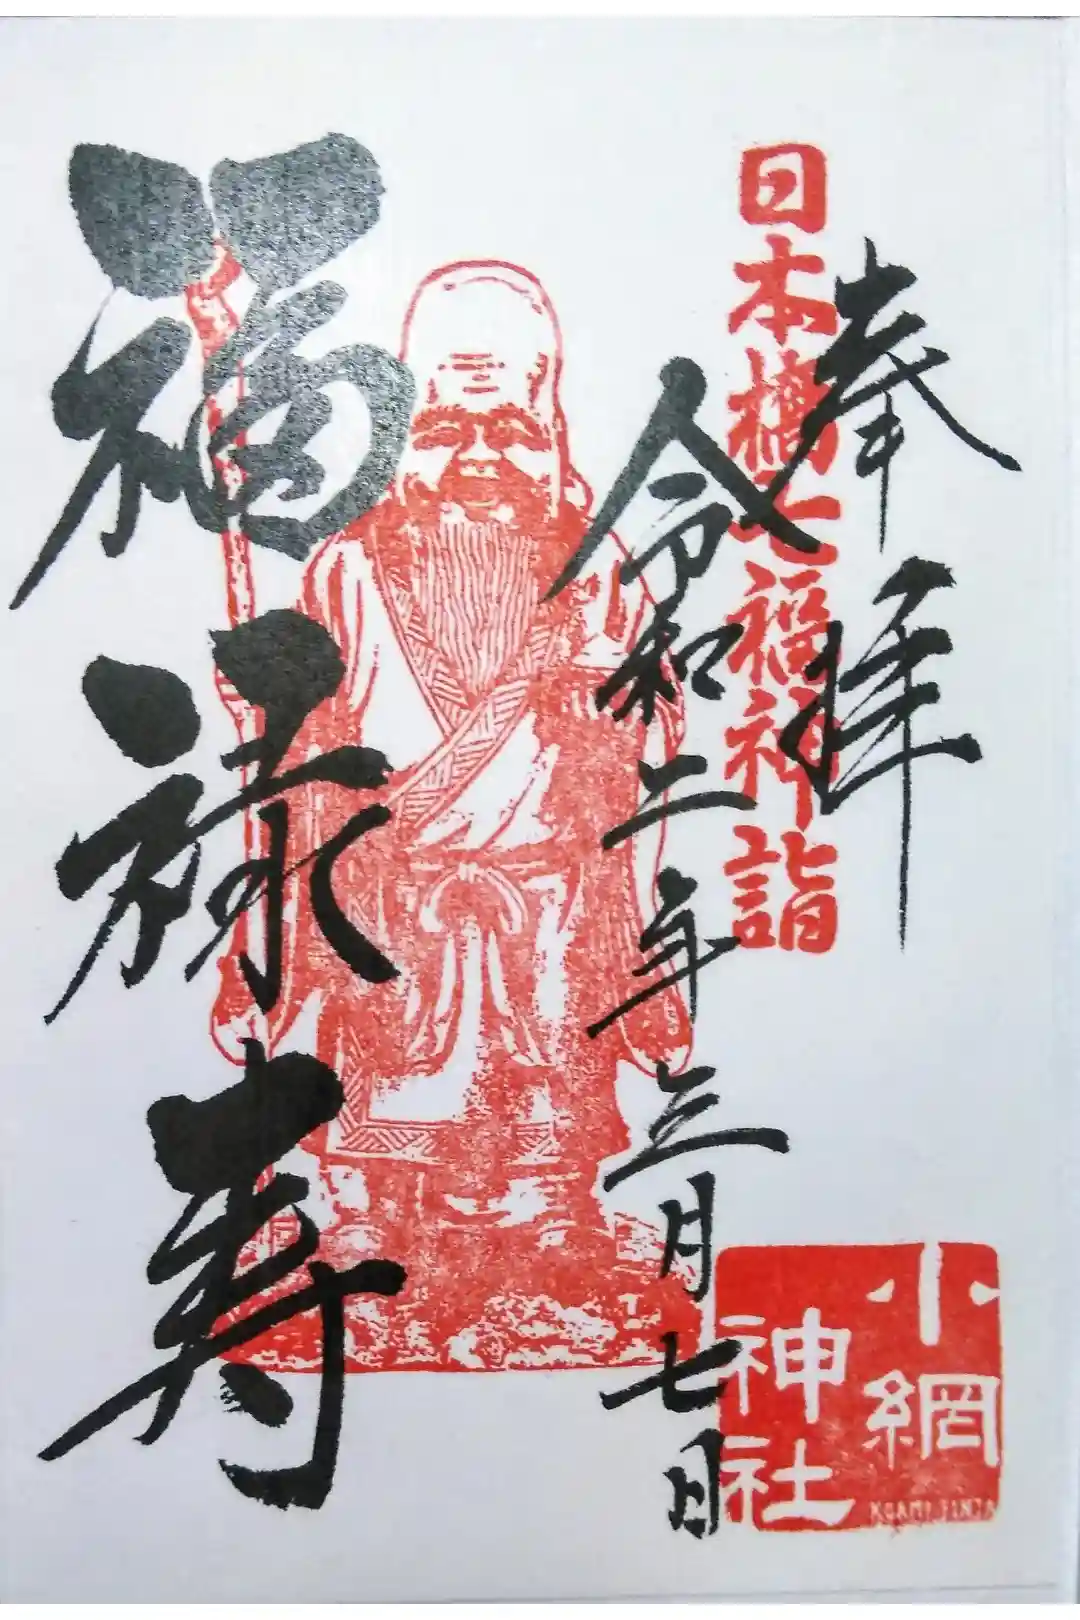 奉拝
日本橋七福神詣
令和二年三月七日
福禄寿
小網
神社
KOAMI JINJA